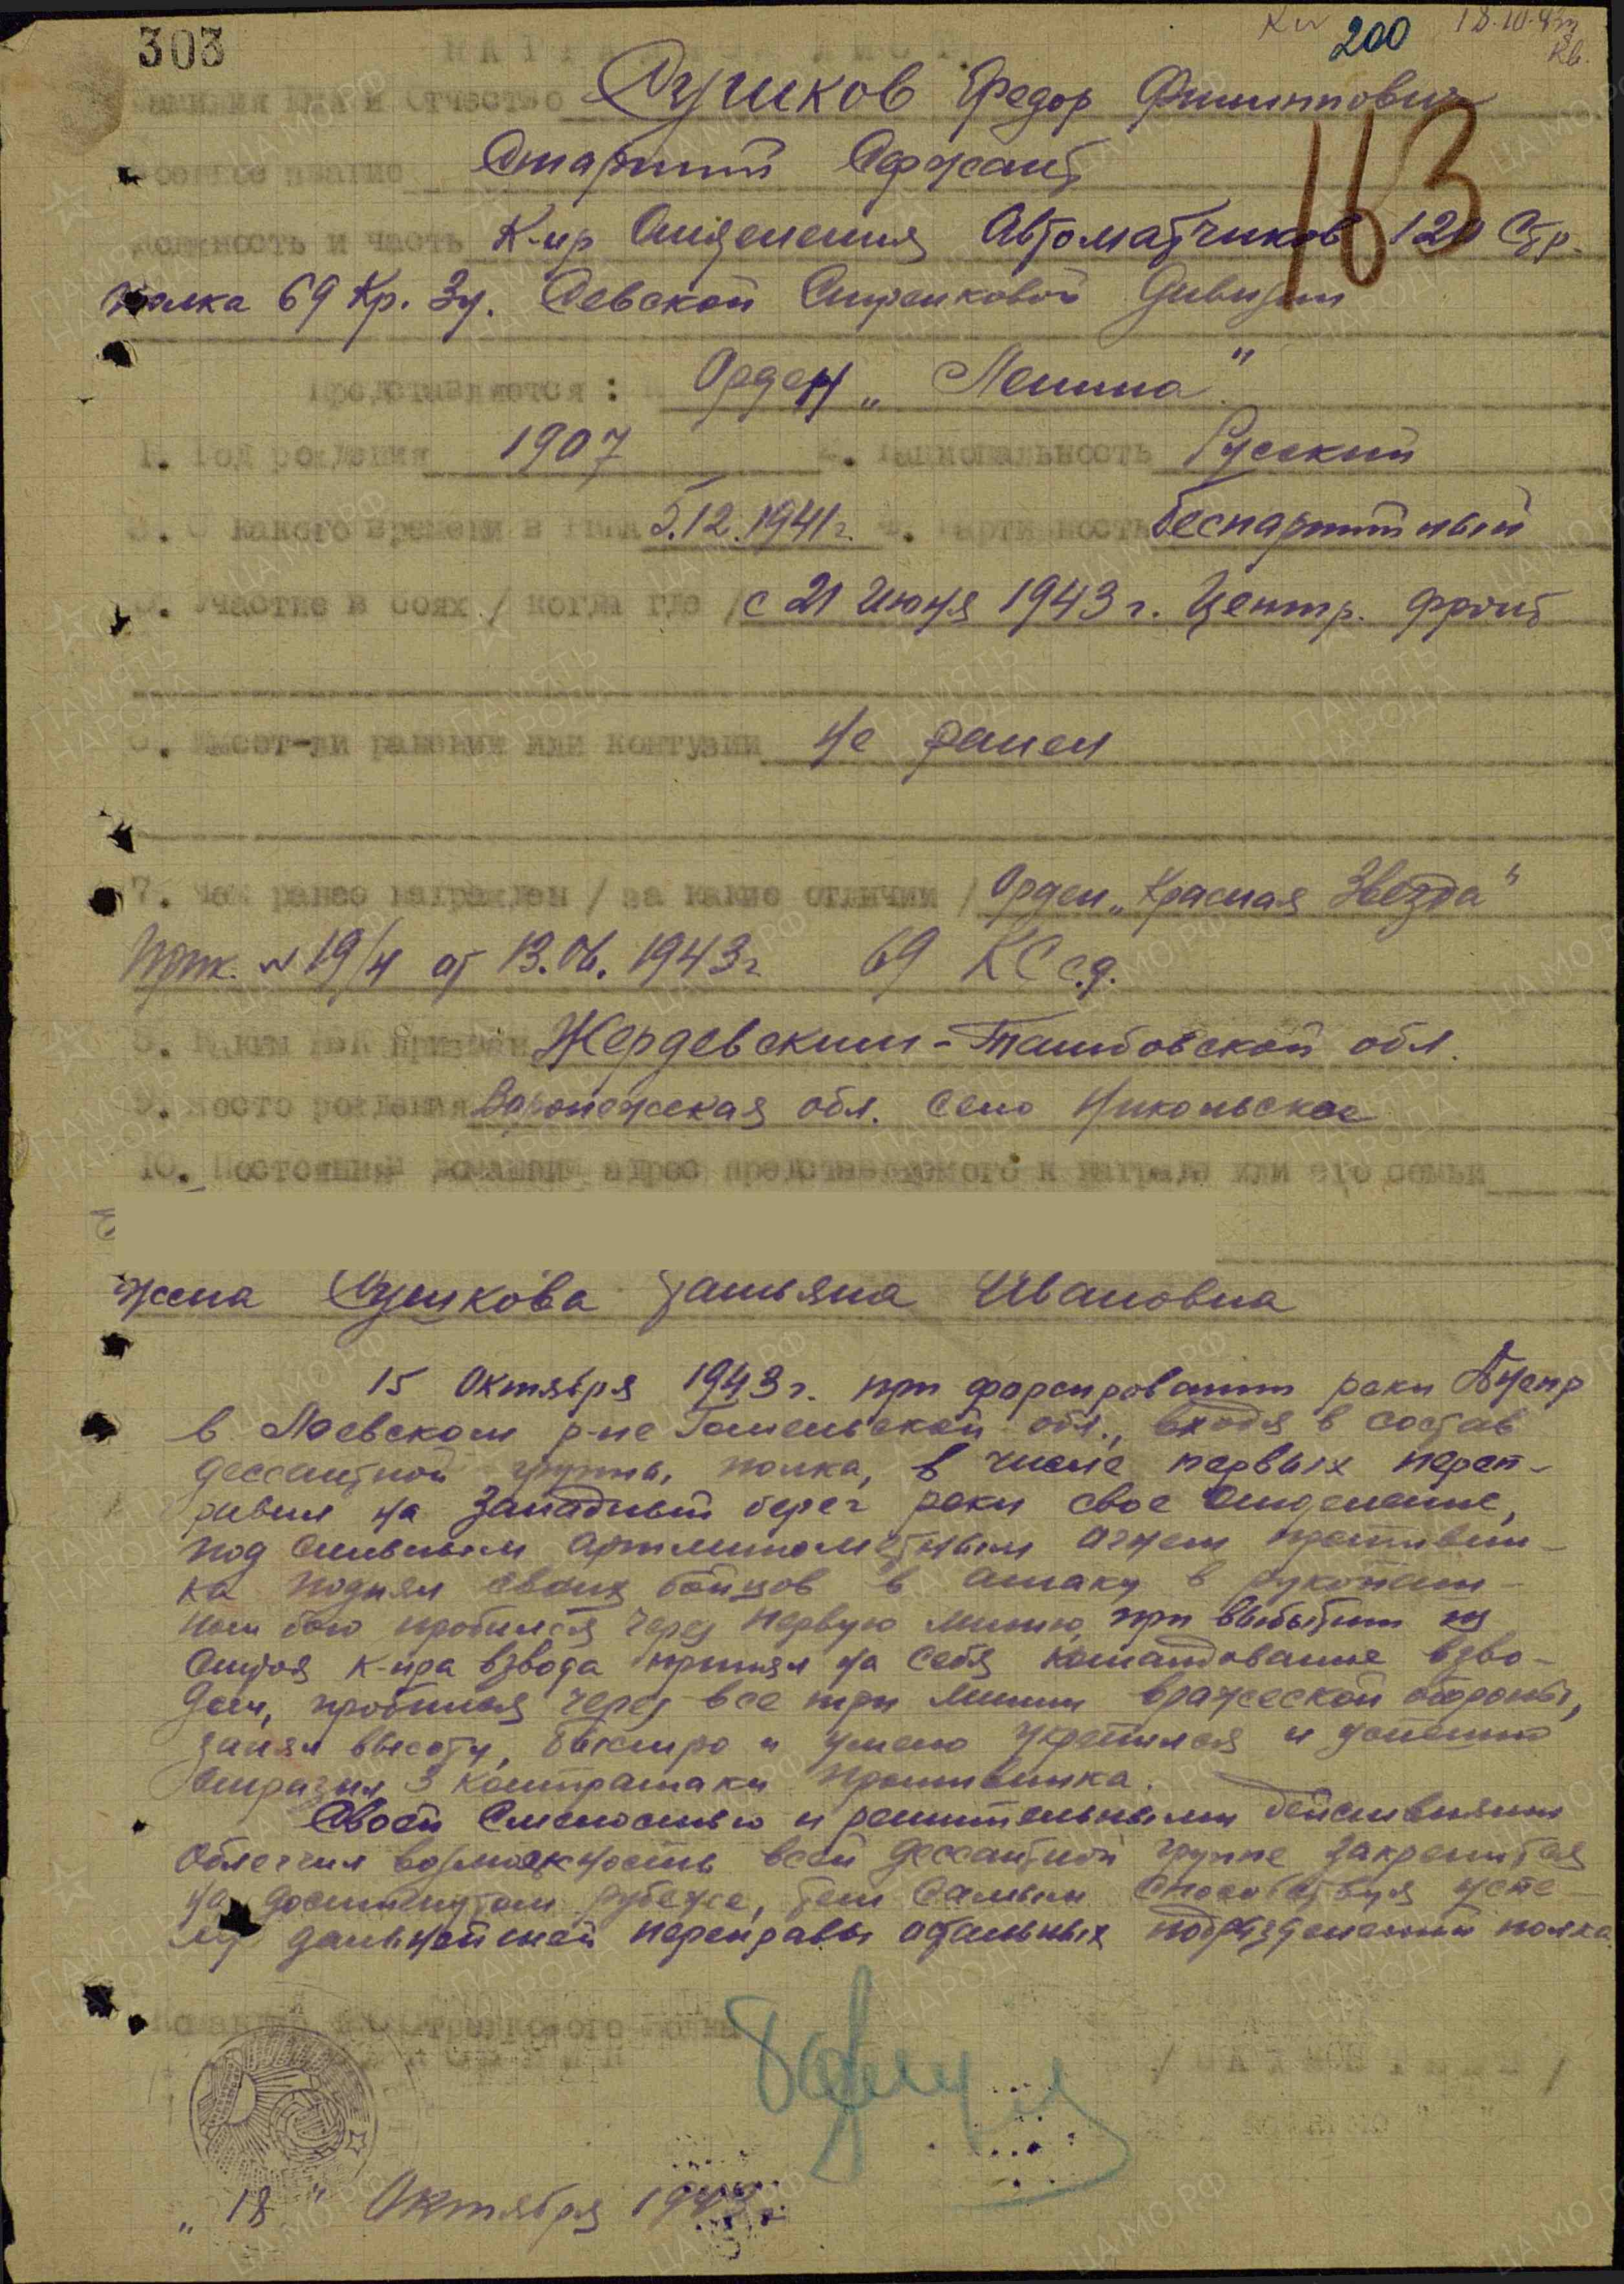 303
200 18.10.43г
НАГРАДНОЙ ЛИСТ.
Фамилия Имя и Отчество Сушков Федор Филиппович
Военное звание Старший Сержант
163
Должность и часть К-ир Отделения Автоматчиков 120 Стр.
полка 69 Кр. Зн. Севской Стрелковой Дивизии
Представляется: Орден „Ленина"
1. Год рождения 1907 2. Национальность Русский
3. С какого времени в РККА 5.12.1941г. 4. Партийность беспартийный
5. Участие в боях / когда где / с 21 июня 1943 г. Центр. фронт
6. Имеет-ли ранения или контузии не ранен
7. Чем ранее награжден / за какие отличия / Орден „Красная Звезда"
Прик. № 19/н от 13.06. 1943г 69 КС с.д.
8. Каким РВК призван Жердевским-Тамбовской обл.
9. Место рождения Воронежская обл. село Никольское
10. Постоянный домашний адрес представляемого к награде или его семьи
жена Сушкова Татьяна Ивановна
15 Октября 1943 г. при форсировании реки Днепр
в Лоевском р-не Гомельской обл., входя в состав
дессантной группы, полка, в числе первых переп-
равил на Западный берег реки свое отделение,
под сильным артминометным огнем противни-
ка поднял своих бойцов в атаку в рукопаш-
ном бою пробился через первую линию, при выбытии из
строя к-ира взвода принял на себя командование взво-
дом, пробился через все три линии вражеской обороны,
занял высоту, быстро и умело укрепился и успешно
отразил 3 контратаки противника.
Своей смелостью и решительными действиями
облегчил возможность всей дессантной группе закрепится
на достигнутом рубеже, тем самым способствуя успе-
ху дальнейшей переправы остальных подразделений полка.
Командир 120 Стрелкового полка
„18" Октября 1943г.
ПАМЯТЬ НАРОДА
ЦАМО.РФ